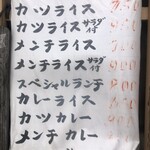 カツライス
カツライス サラダ付
メンチライス
メンチライス サラダ付
スペシャルランチ 900
カレーライス
カツカレー 800
メンチカレー